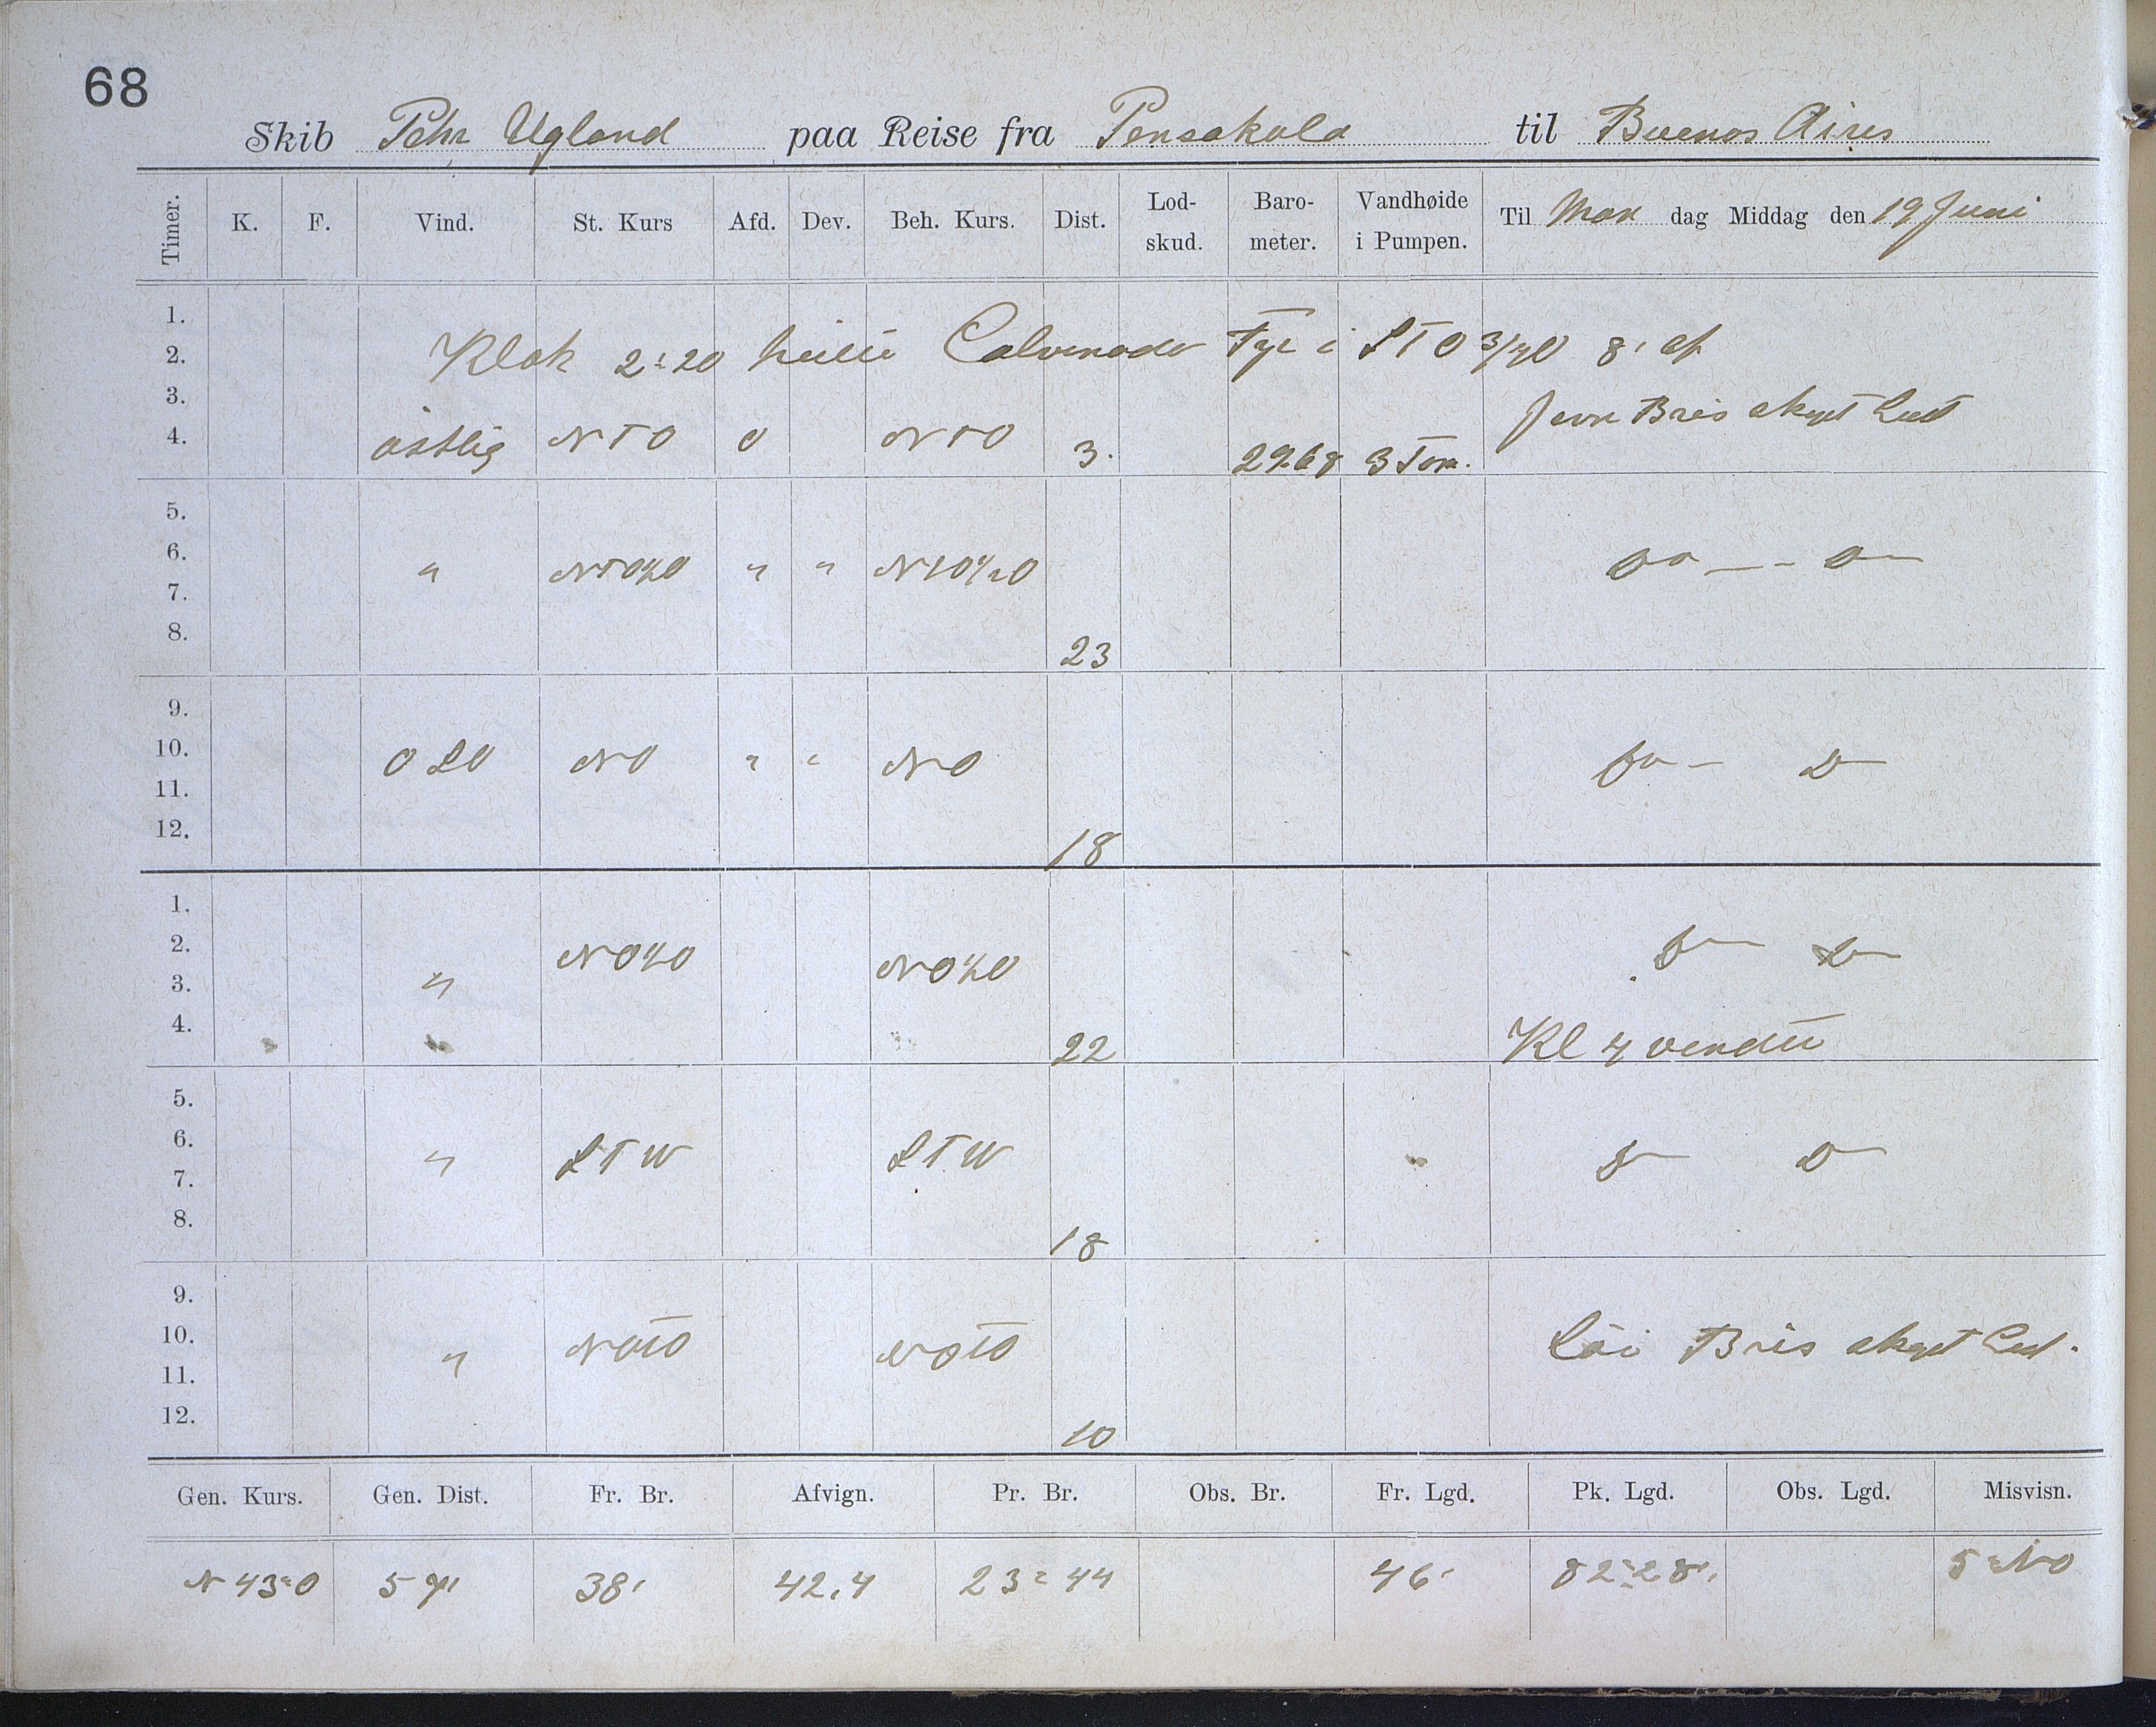 68
Skib Pehr Ugland paa Reise fra Pensakola til Buenos Aires
Timer. K. F. Vind. St. Kurs Afd. Dev. Beh. Kurs. Dist. Lod-skud. Baro-meter. Vandhøide i Pumpen. Til Man dag Middag den 19 Juni
1.
2. Klok 2:20 Fyr i STO 3/4 O 8' af
3. Jevn Bris skyet Luft
4. östlig NTO 0 NTO 3. 29.68 3 Tom.
5.
6. " NTO½O " " NTO½O
7.
8. 23
9.
10. OSO NO " " NO
11.
12. 18
1.
2. NO½O NO½O
3. "
4. 22 Kl 4 vendte
5.
6. " STW STW
7.
8. 18
9.
10. " NOTO NOTO Löi Bris skyet Luft.
11.
12. 10
Gen. Kurs. Gen. Dist. Fr. Br. Afvign. Pr. Br. Obs. Br. Fr. Lgd. Pk. Lgd. Obs. Lgd. Misvisn.
N 43° O 38' 42,4 23° 44 46' 82° 28' 5° NO